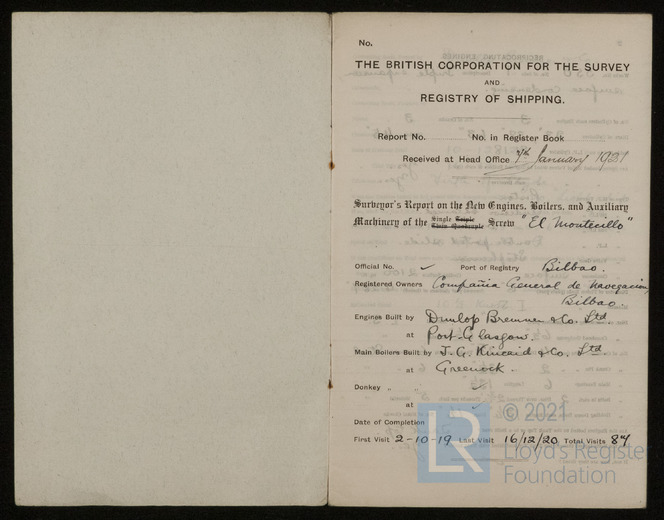 No.
THE BRITISH CORPORATION FOR THE SURVEY
AND
REGISTRY OF SHIPPING.
Report No. No. in Register Book
Received at Head Office 7th January 1921
Surveyor's Report on the New Engines, Boilers, and Auxiliary
Machinery of the Single Triple Twin Quadruple Screw "El Montecillo"
Official No. ✓ Port of Registry Bilbao.
Registered Owners Compañia General de Navegacion,
Bilbao.
Engines Built by Dunlop Bremner & Co. Ltd.
at Port-Glasgow.
Main Boilers Built by J. G. Kincaid & Co. Ltd.
at Greenock.
Donkey " " ✓
at ✓
Date of Completion
First Visit 2-10-19 Last Visit 16/12/20 Total Visits 84
LR
© 2021
Lloyd's Register
Foundation